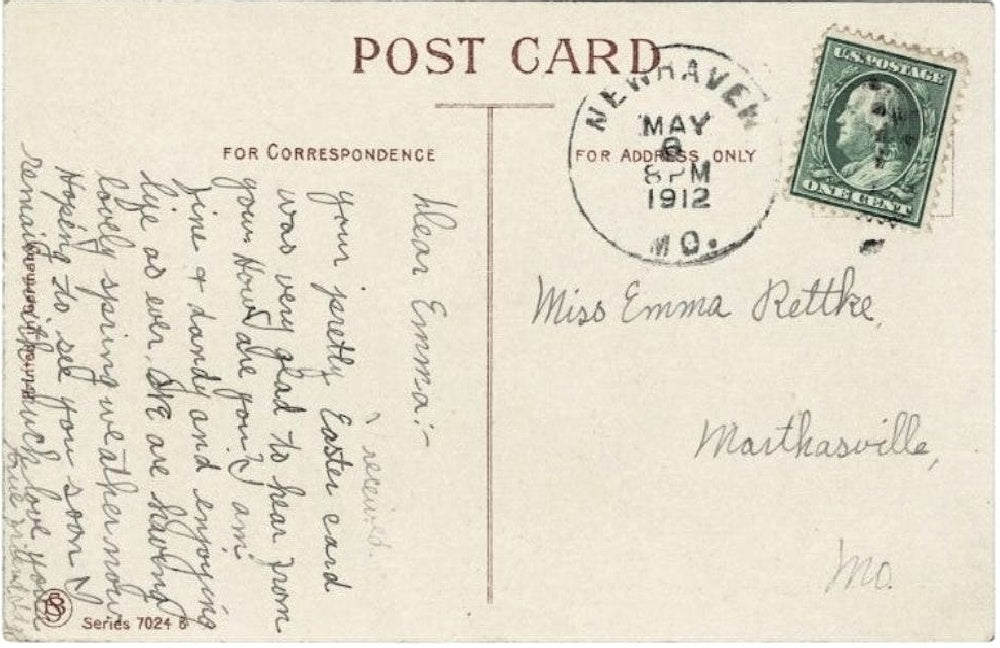 POST CARD
FOR CORRESPONDENCE
FOR ADDRESS ONLY
NEW HAVEN
MAY
6
8 PM
1912
MO.
U.S. POSTAGE
ONE CENT
Miss Emma Rettke,
Marthasville,
Mo.
Dear Emma:-
I received
your pretty Easter card
was very glad to hear from
you. How are you? I am
fine & dandy and enjoying
life as ever. We are having
lovely spring weather now.
Hoping to see you soon I
remain with much love your
true
Series 7024 B